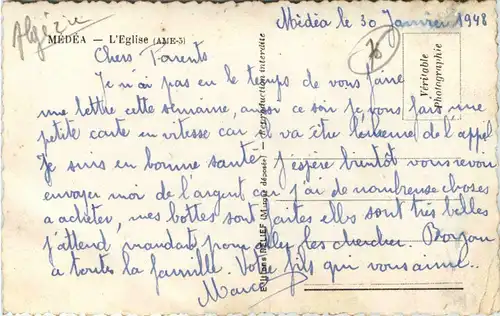 Algérie
Médéa le 30 Janvier 1948
MÉDÉA — L'Eglise (AME-5)
76
Chers Parents
Je n'ai pas eu le temps de vous faire
une lettre cette semaine, aussi ce soir je vous fait une
petite carte en vitesse car il va être l'heure de l'appel
Je suis en bonne santé J'espère bientôt vous revoir
envoyer moi de l'argent car j'ai de nombreuse choses
a acheter, mes bottes sont faites elles sont très belles
j'attend mandat pour aller les chercher. Bonjour
a toutes la famille. Votre fils qui vous aime..
Marcel
Véritable
Photographie
Editions RELIEF (Marque déposée) — Reproduction interdite